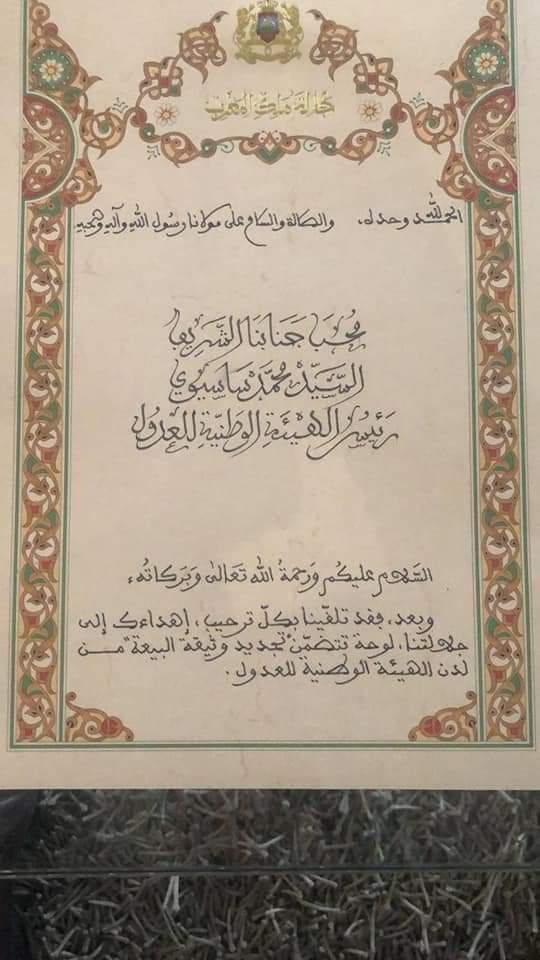 جلالة ملك المغرب
الحمد لله وحده، والصلاة والسلام على مولانا رسول الله وآله وصحبه
محب جنابنا الشريف
السَّيِّد مُحَمَّد ساسيوي
رَئِيسُ الهَيْئَةِ الوَطَنِيَّةِ لِلْعُدُولِ
السَّلام عليكم وَرَحمةُ اللهِ تَعَالى وَبَرَكاتُه،
وبعد، فقد تلقّينا بكلّ ترحيب، إهداءك إلى
جلالتنا، لوحة تتضمّن "تجديد وثيقة البيعة" من
لدن الهيئة الوطنية للعدول.